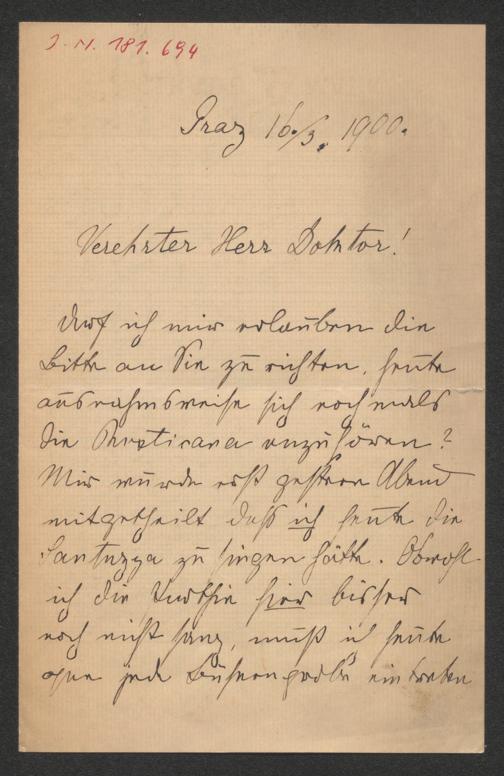 J. N. 181.694
Graz 16./3. 1900.
Verehrter Herr Doktor!
Darf ich mir erlauben die
Bitte an Sie zu richten, heute
ausnahmsweise sich nochmals
die Rusticana anzuhören?
Mir wurde erst gestern Abend
mitgetheilt daß ich heute die
Santuzza zu singen hätte. Obwohl
ich die Parthie hier bisher
noch nicht sang, muß ich heute
ohne jede Bühnenprobe eintreten